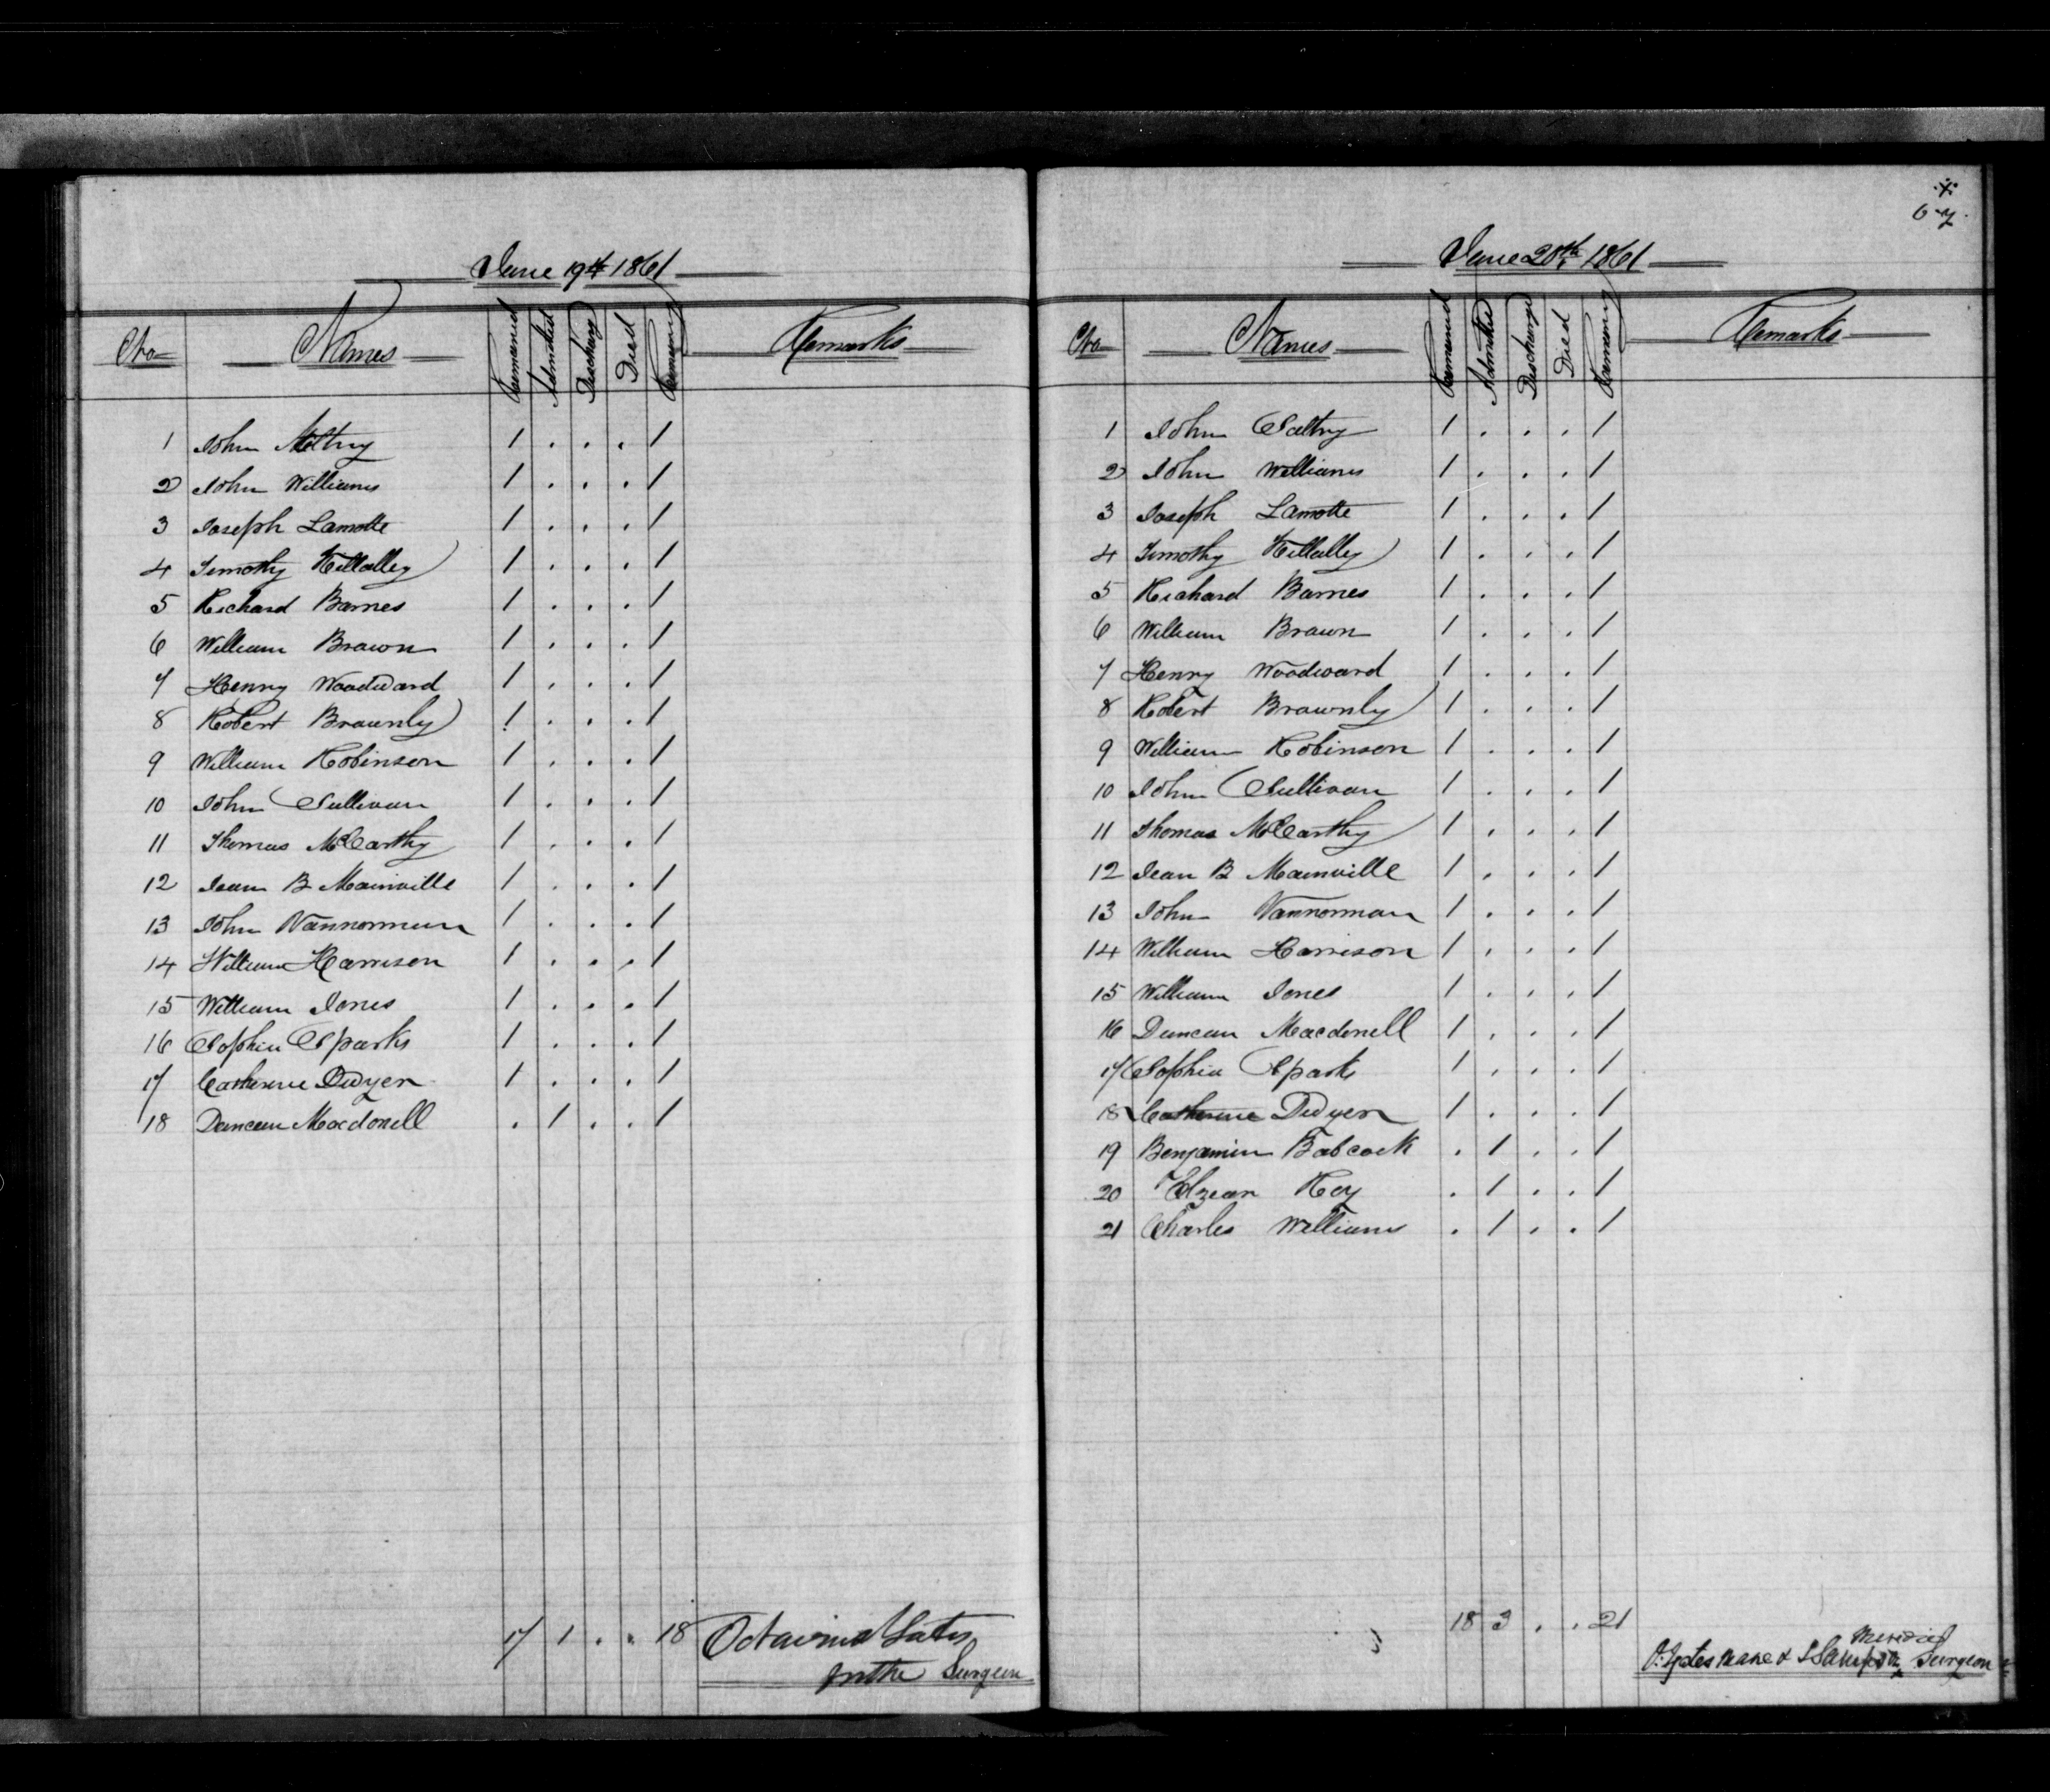 June 19th 1861
No Names Remained Admitted Discharg Died Remaining Remarks
1 John 1 . . . 1
2 John Williams 1 . . . 1
3 Joseph Lamotte 1 . . . 1
4 Timothy Killalley 1 . . . 1
5 Richard Barnes 1 . . . 1
6 William Brawn 1 . . . 1
7 Henry Woodward 1 . . . 1
8 Robert Brawnly 1 . . . 1
9 William Robinson 1 . . . 1
10 John Sullivan 1 . . . 1
11 Thomas McCarthy 1 . . . 1
12 Jean B Mainville 1 . . . 1
13 John Vannorman 1 . . . 1
14 William Harrison 1 . . . 1
15 William Jones 1 . . . 1
16 Sophia Sparks 1 . . . 1
17 Catherine Dwyer 1 . . . 1
18 Duncan Macdonell . 1 . . 1
17 1 . . 18 Octavius Yates
for the Surgeon
67
June 20th 1861
No Names Remained Admitted Discharge Died Remaining Remarks
1 John Saltry 1 . . . 1
2 John Williams 1 . . . 1
3 Joseph Lamotte 1 . . . 1
4 Timothy Killalley 1 . . . 1
5 Richard Barnes 1 . . . 1
6 William Brawn 1 . . . 1
7 Henry Woodward 1 . . . 1
8 Robert Brawnly 1 . . . 1
9 William Robinson 1 . . . 1
10 John Sullivan 1 . . . 1
11 Thomas McCarthy 1 . . . 1
12 Jean B Mainville 1 . . . 1
13 John Vannorman 1 . . . 1
14 William Harrison 1 . . . 1
15 William Jones 1 . . . 1
16 Duncan Macdonell 1 . . . 1
17 Sophia Sparks 1 . . . 1
18 Catherine Dwyer 1 . . . 1
19 Benjamin Babcock . 1 . . 1
20 Elzear Roy . 1 . . 1
21 Charles Williams . 1 . . 1
18 3 . . 21
O. Yates Sampson Surgeon